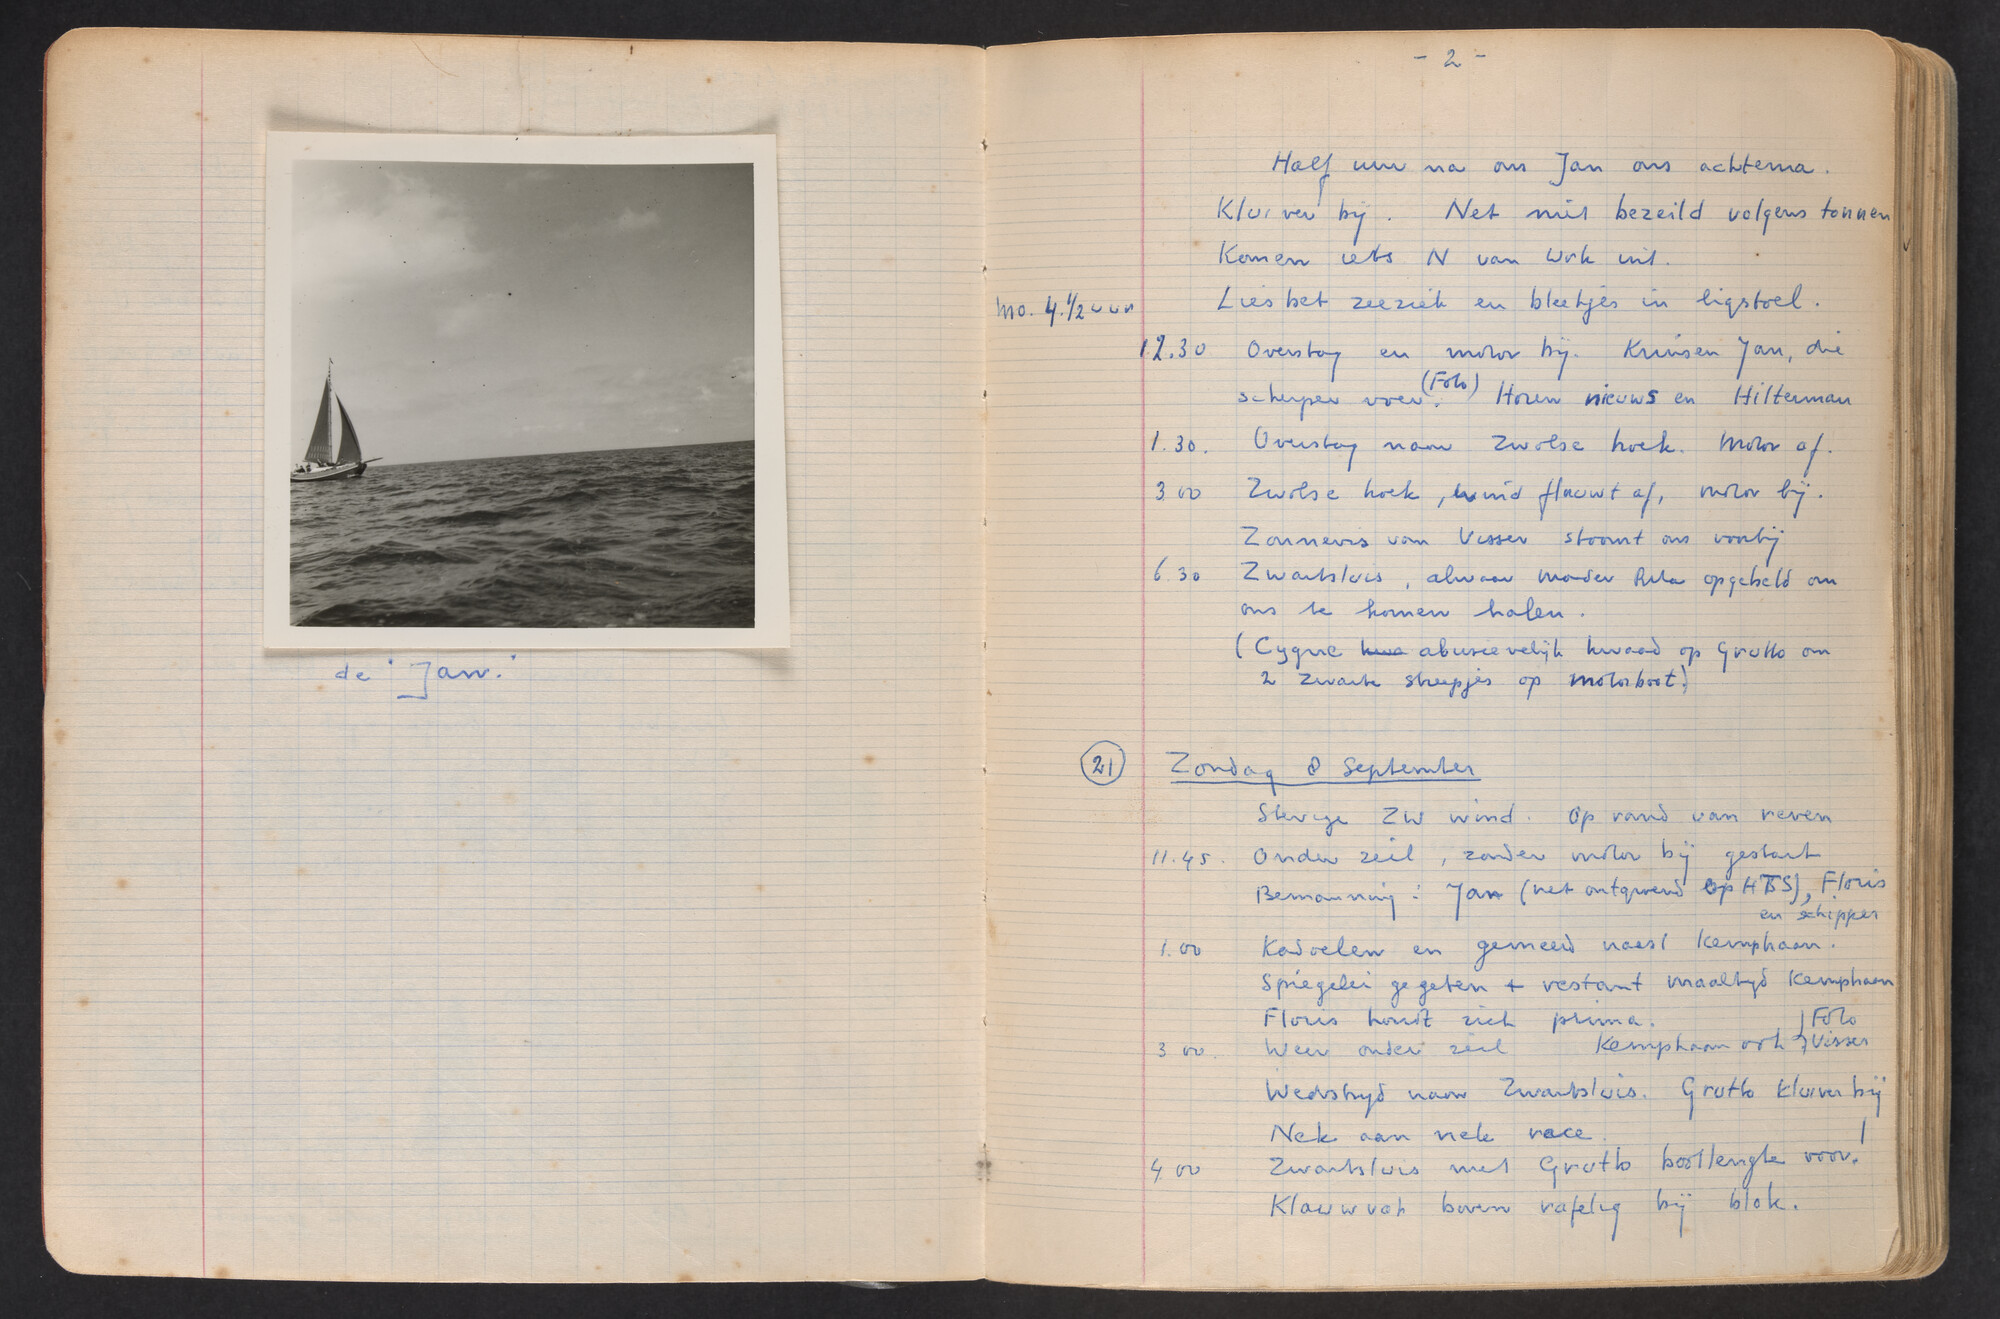 de "Jan."
- 2 -
Half uur na ons Jan ons achterna.
Kluiver bij. Net niet bezeild volgens tonnen
Komen iets N van Urk uit.
Mo. 4 1/2 uur
Liesbet zeeziek en bleekjes in ligstoel.
12.30 Overstag en motor bij. Kruisen Jan, die
scherper voer. (Foto) Horen nieuws en Hilterman
1.30. Overstag naar Zwolse hoek. Motor af.
3 00 Zwolse hoek, wind flauwt af, motor bij.
Zonnevis van Visser stoomt ons voorbij
6.30 Zwartsluis, alwaar moeder opgebeld om
ons te komen halen.
(Cygne abusievelijk kwaad op Grutto om
2 zwarte streepjes op motorboot)
21 Zondag 8 September
Stevige ZW wind. Op rand van reven
11.45. Onder zeil, zonder motor bij gestart
Bemanning: Jan (net ontgroend op HTS), Floris
en schipper
1.00 Kadoelen en gemeerd naast Kemphaan.
Spiegelei gegeten + restant maaltijd Kemphaan
Floris houdt zich prima.
3 00. Weer onder zeil Kemphaan ook } Foto Visser
Wedstrijd naar Zwartsluis. Grutto kluiver bij
Nek aan nek race.
4 00 Zwartsluis met Grutto bootlengte voor!
Klauwval boven rafelig bij blok.